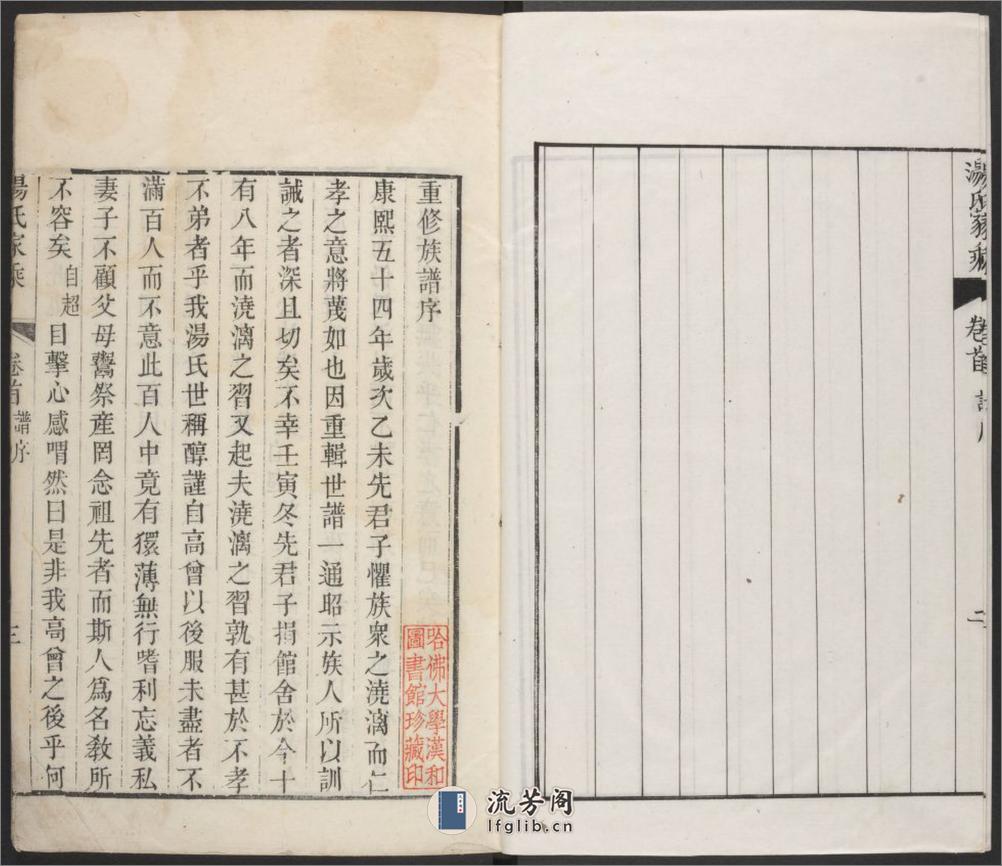 湯氏家乘
卷首
二
重修族譜序
康熙五十四年歲次乙未先君子懼族衆之澆漓而仁
孝之意將蔑如也因重輯世譜一通昭示族人所以訓
誡之者深且切矣不幸壬寅冬先君子捐館舍於今十
有八年而澆漓之習又起夫澆漓之習孰有甚於不孝
不弟者乎我湯氏世稱醇謹自高曾以後服未盡者不
滿百人而不意此百人中竟有獧薄無行嗜利忘義私
妻子不顧父母鬻祭産罔念祖先者而斯人爲名敎所
不容矣自超目擊心感喟然曰是非我高曾之後乎何
湯氏家乘 卷首 譜序 三
哈佛大學漢和
圖書館珍藏印
流芳阁
lfglib.cn